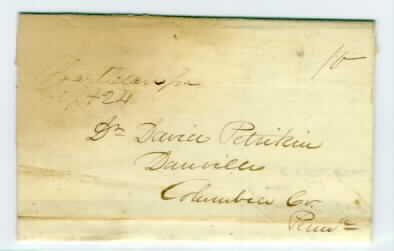 10
24
Dr. David Petrikin
Danville
Columbia Co.
Penna